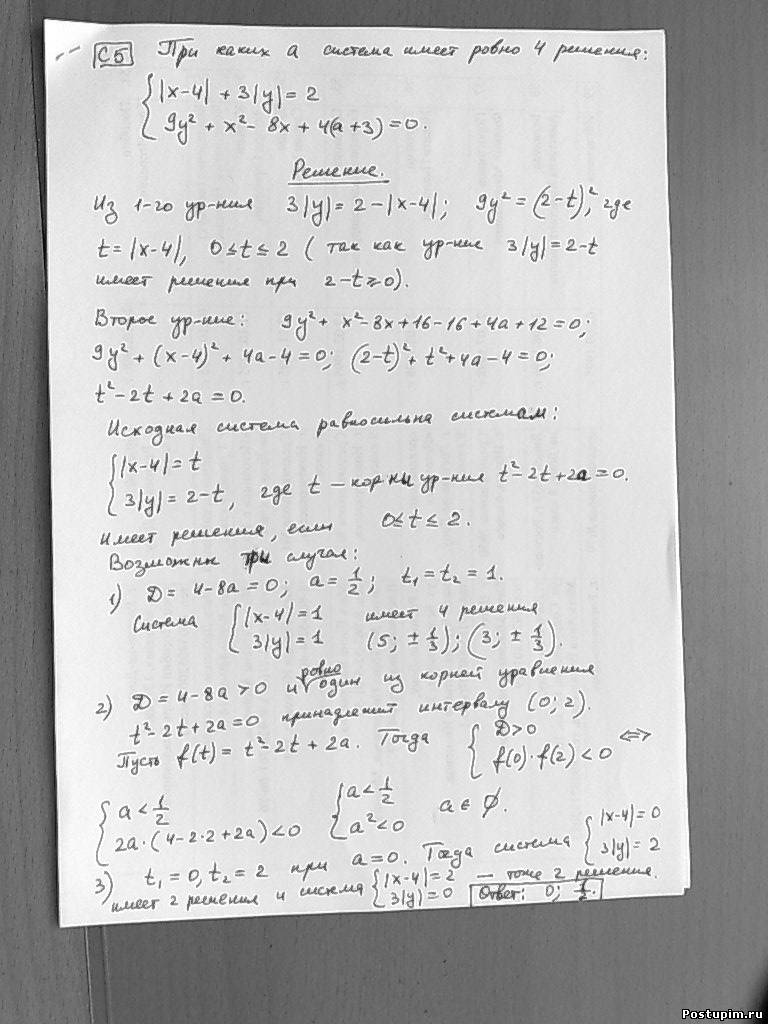 С5 При каких а система имеет ровно 4 решения:
{ |x-4| + 3|y| = 2
9y² + x² - 8x + 4(a+3) = 0.
Решение.
Из 1-го ур-ния 3|y| = 2 - |x-4|; 9y² = (2-t)², где
t = |x-4|, 0 ≤ t ≤ 2 ( так как ур-ние 3|y| = 2-t
имеет решения при 2-t ≥ 0).
Второе ур-ние: 9y² + x² - 8x + 16 - 16 + 4a + 12 = 0;
9y² + (x-4)² + 4a - 4 = 0; (2-t)² + t² + 4a - 4 = 0;
t² - 2t + 2a = 0.
Исходная система равносильна системам:
{ |x-4| = t
3|y| = 2-t, где t – корни ур-ния t² - 2t + 2a = 0.
Имеет решения, если 0 ≤ t ≤ 2.
Возможны три случая:
1) D = 4 - 8a = 0; a = 1/2; t₁ = t₂ = 1.
Система { |x-4| = 1 имеет 4 решения
3|y| = 1 (5; ± 1/3); (3; ± 1/3).
2) D = 4 - 8a > 0 и ровно один из корней уравнения
t² - 2t + 2a = 0 принадлежит интервалу (0; 2).
Пусть f(t) = t² - 2t + 2a. Тогда { D > 0
f(0)·f(2) < 0 <=>
{ a < 1/2
2a·(4 - 2·2 + 2a) < 0 { a < 1/2
a² < 0 a ∈ ∅.
3) t₁ = 0, t₂ = 2 при a = 0. Тогда система { |x-4| = 0
3|y| = 2
имеет 2 решения и система { |x-4| = 2
3|y| = 0 – тоже 2 решения.
Ответ: 0; 1/2.
Postupim.ru